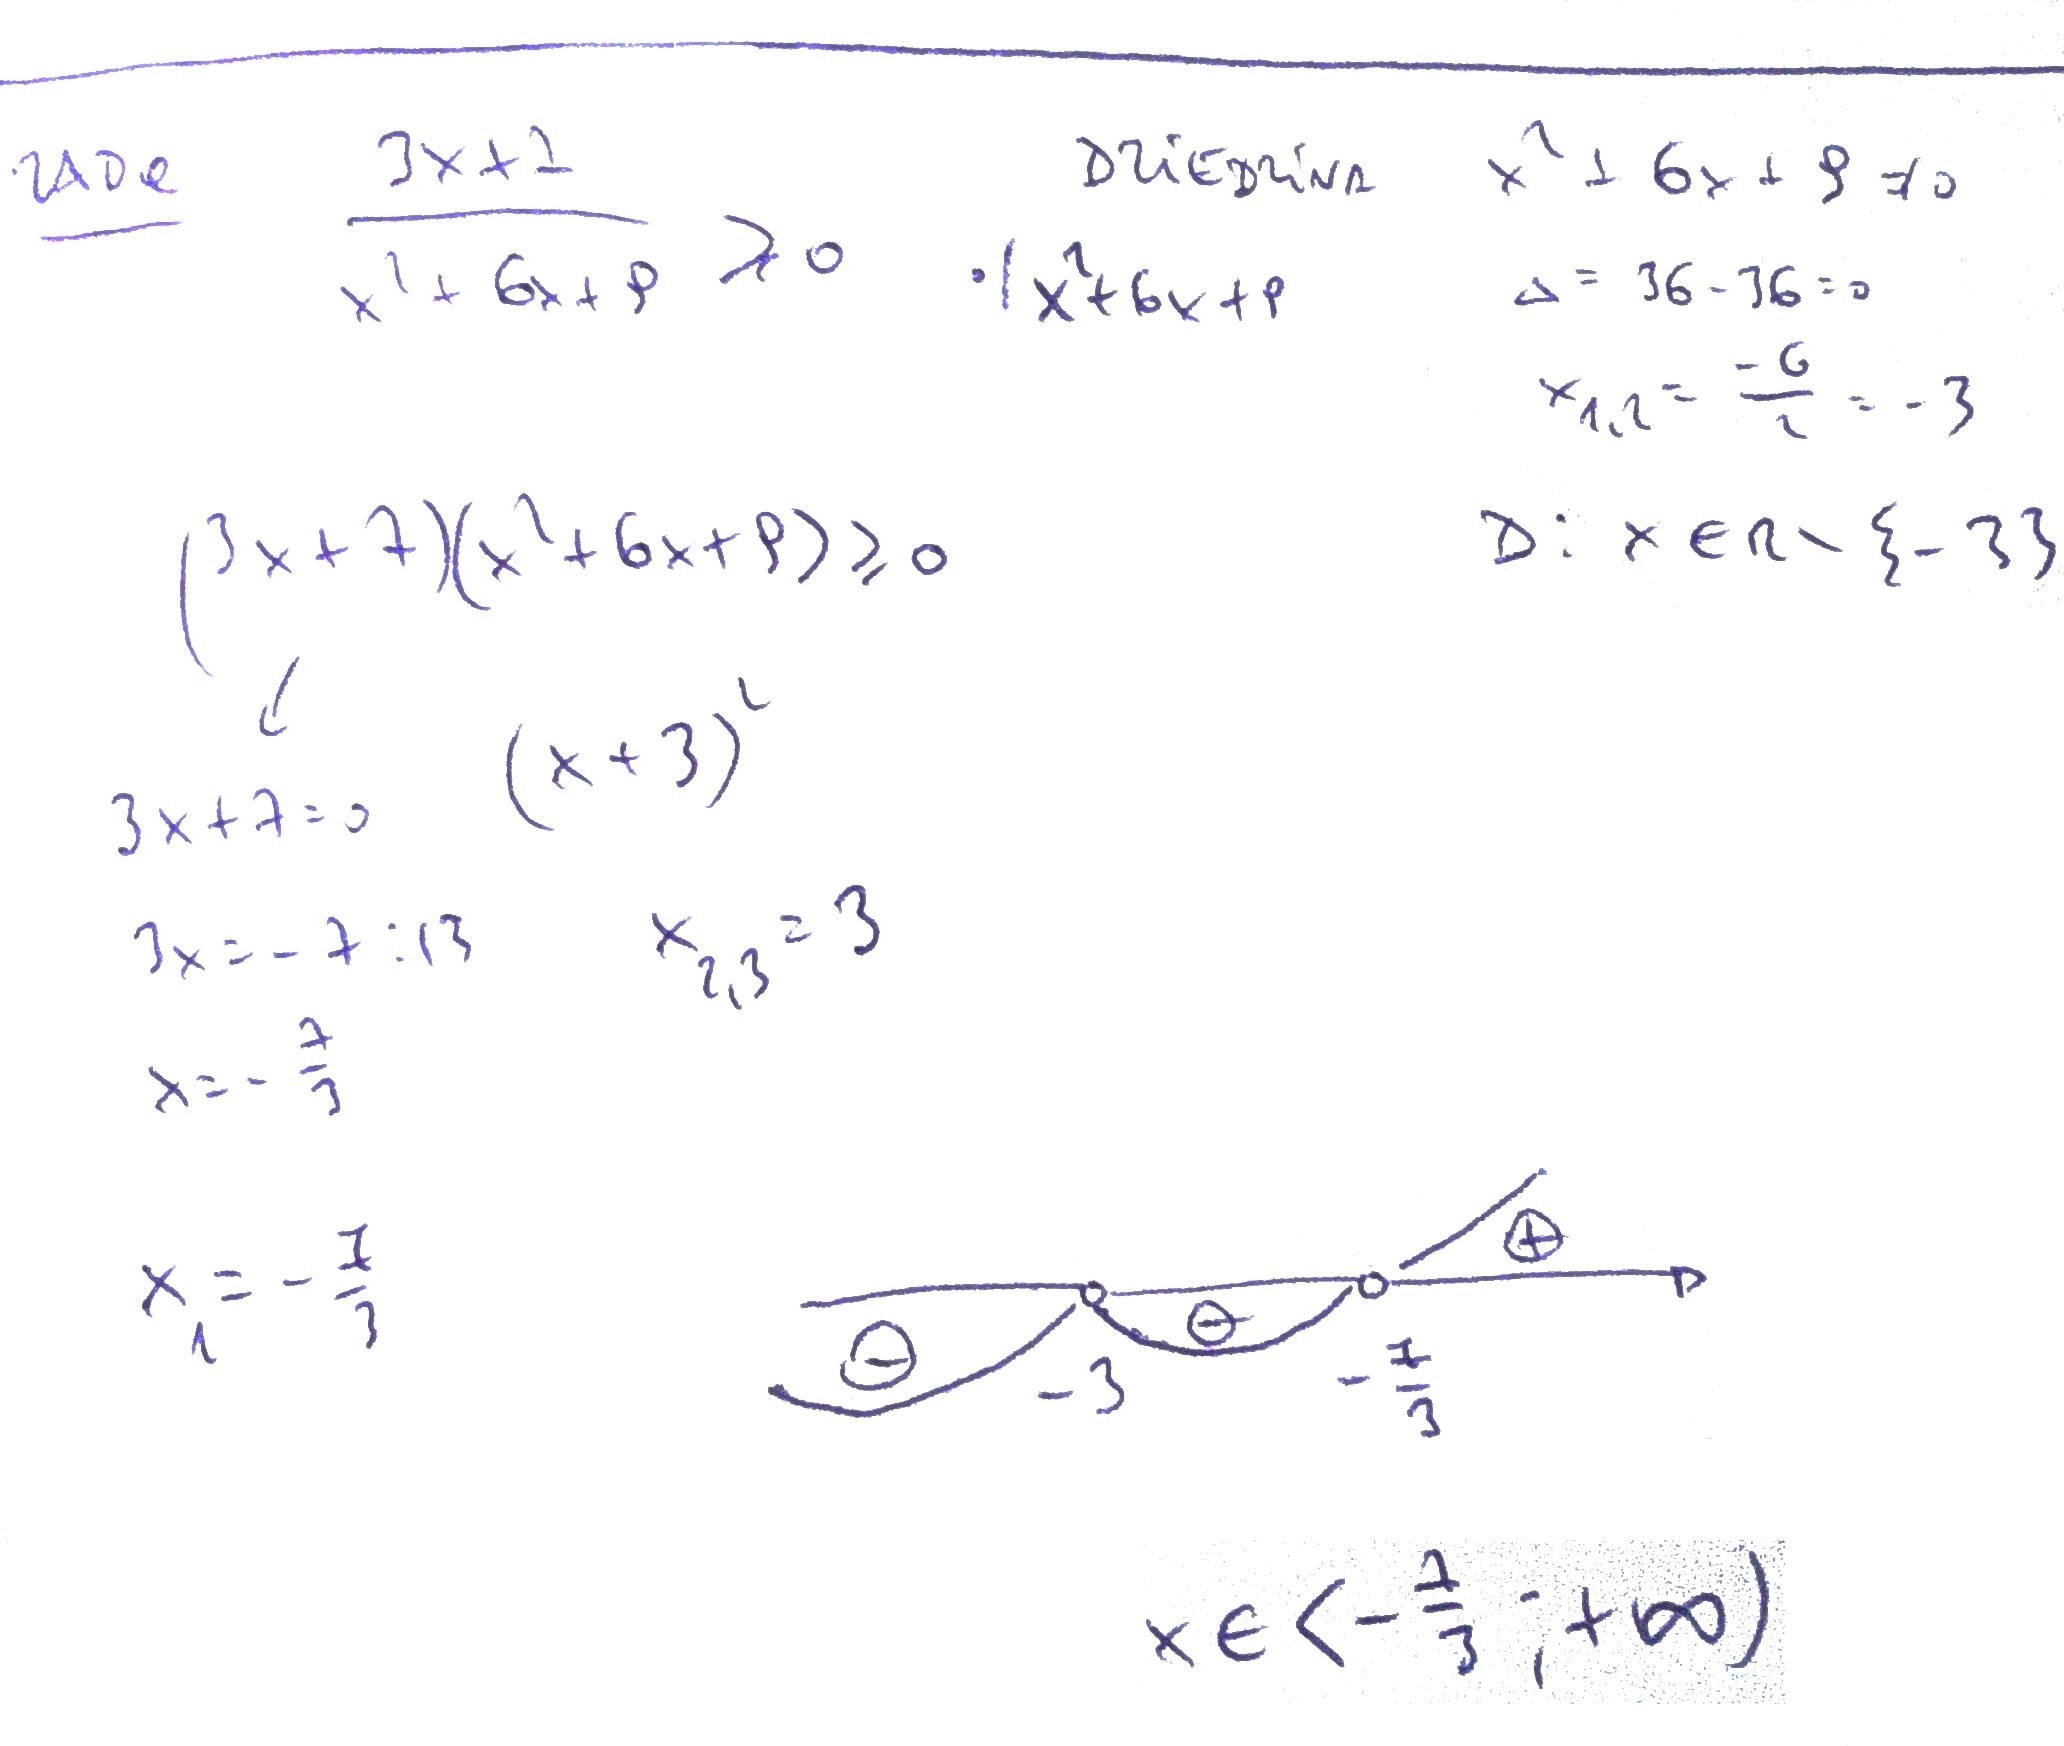 ZADe
3x+7
x²+6x+9 ≥ 0 ·/ x²+6x+9
DZIEDZINA x²+6x+9≠0
Δ=36-36=0
x₁,₂ = -6/2 = -3
D: x∈R\{-3}
(3x+7)(x²+6x+9)≥0
3x+7=0 (x+3)²
3x=-7 :|3 x₂,₃=3
x=-7/3
x₁=-7/3
⊖ -3 ⊖ -7/3 ⊕
x∈<-7/3;+∞)